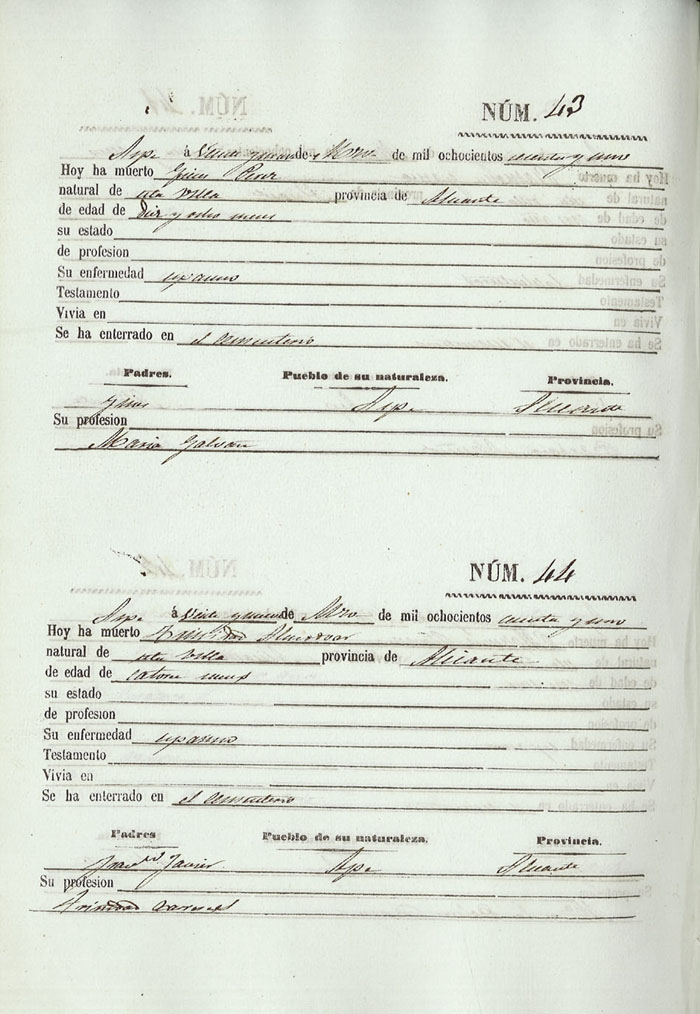 NÚM. 43
Aspe á Veinte y nueve de de mil ochocientos cuarenta y uno
Hoy ha muerto Gines Perez
natural de esta Villa provincia de Alicante
de edad de Diez y ocho meses
su estado
de profesion
Su enfermedad espasmo
Testamento
Vivia en
Se ha enterrado en el cementerio
Padres. Pueblo de su naturaleza. Provincia.
Gines Aspe Alicante
Su profesion
Maria Galvan
NÚM. 44
Aspe á Veinte y nueve de de mil ochocientos cuarenta y uno
Hoy ha muerto Trinidad Almodovar
natural de esta Villa provincia de Alicante
de edad de catorce meses
su estado
de profesion
Su enfermedad espasmo
Testamento
Vivia en
Se ha enterrado en el cementerio
Padres Pueblo de su naturaleza. Provincia.
Javier Aspe Alicante
Su profesion
Trinidad